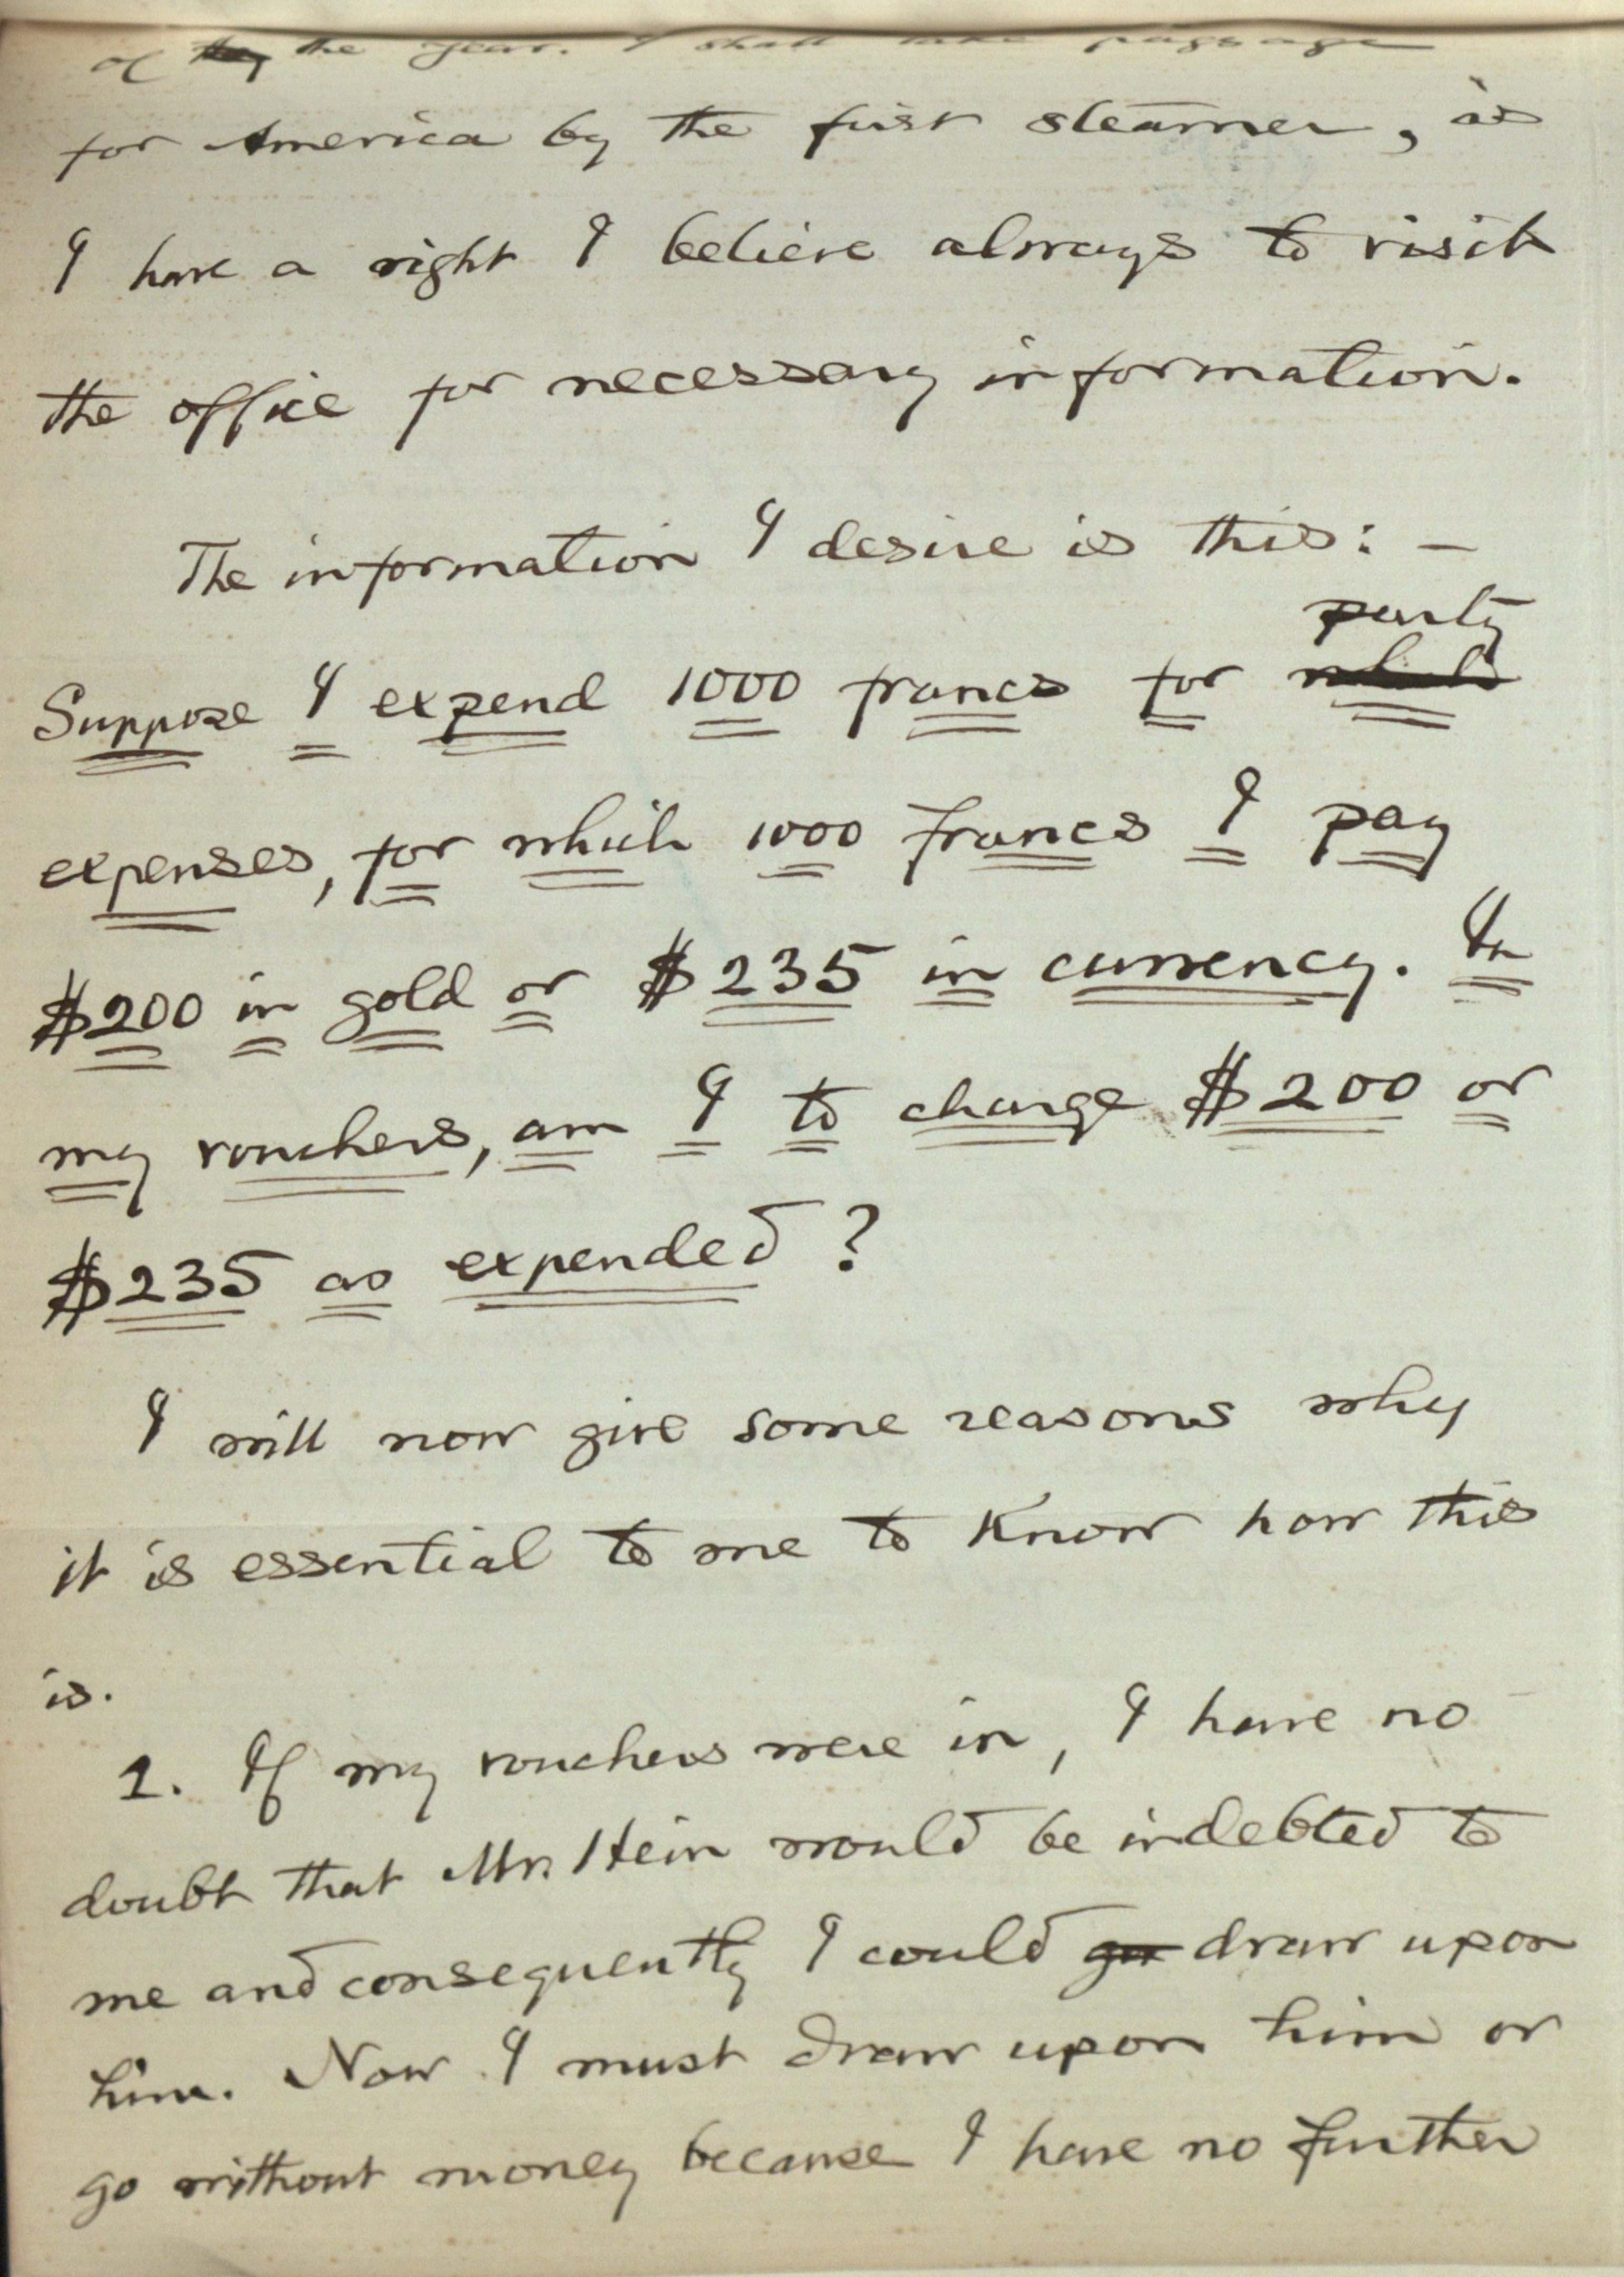 of the year. I shall take passage
for America by the first steamer, as
I have a right I believe always to visit
the office for necessary information.
The information I desire is this: —
party
Suppose I expend 1000 francs for
expenses, for which 1000 francs I pay
$200 in gold or $235 in currency. In
my vouchers, am I to charge $200 or
$235 as expended?
I will now give some reasons why
it is essential to me to know how this
is.
1. If my vouchers were in, I have no
doubt that Mr. Hein would be indebted to
me and consequently I could draw upon
him. Now I must draw upon him or
go without money because I have no further